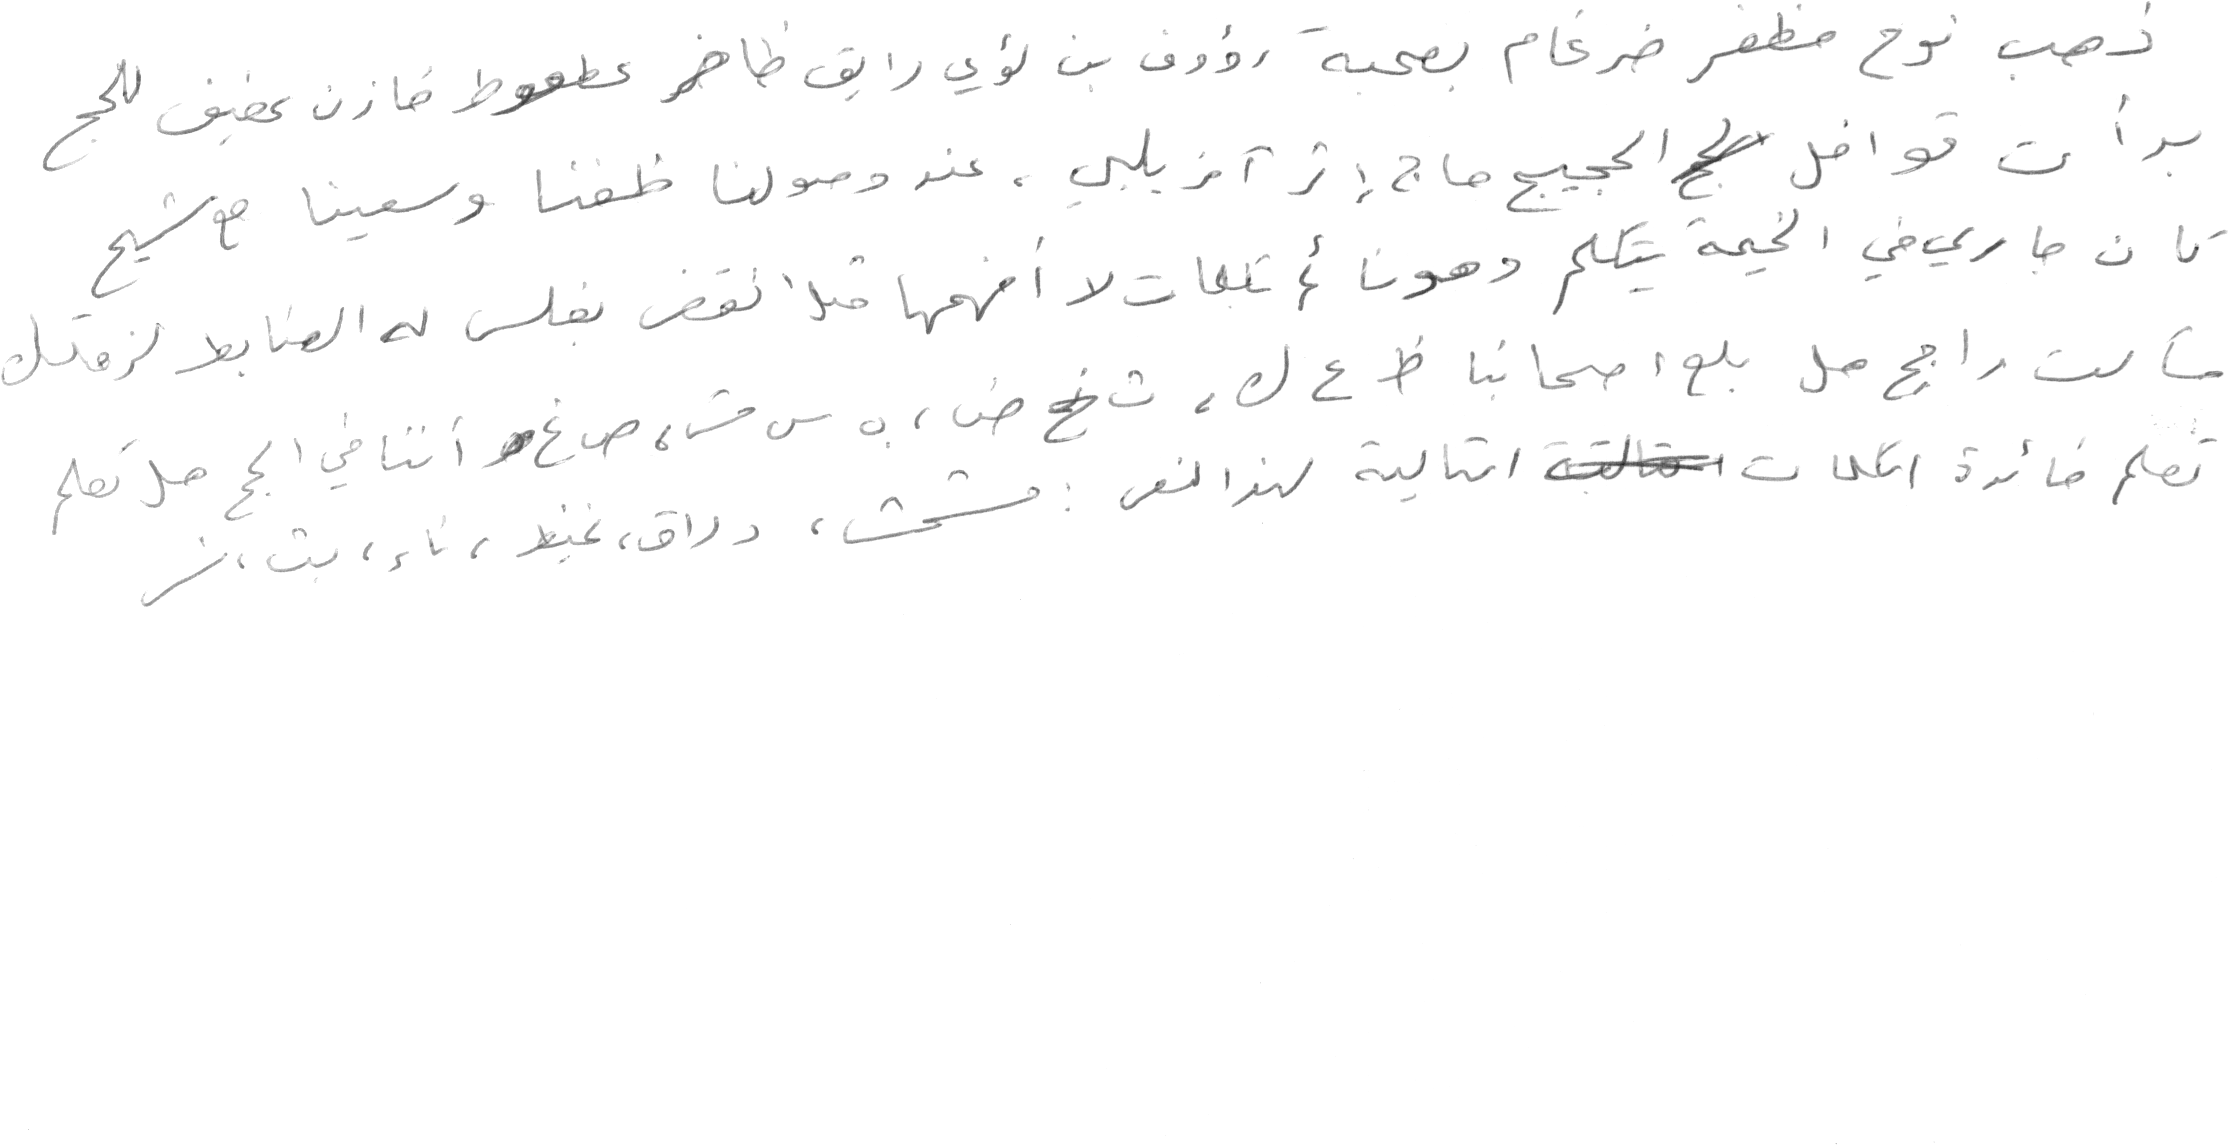 ذهب نوح مظفر ضرغام بصحبة رؤوف بن لؤي رايق ظافر عطعوط خازن عفيف للحج
بدأت قوافل الحجيج حاج إثر آخر يلبي ، عند وصولنا طفنا وسعينا مع شيخ
كان جاري في الخيمة يتكلم وهو نائم بكلمات لا أفهمها مثل نقض بغلس له الضابط لز متك
سألت راجح هل بلغ أصحابنا ظ ع ك ، ث خ ض ، ه س ش ، ص غ أننا في الحج هل تعلم
تعلم فائدة الكلمات التالية لهذا النص : مششث ، دراق ، غيظ ، ناء ، بث ، نز